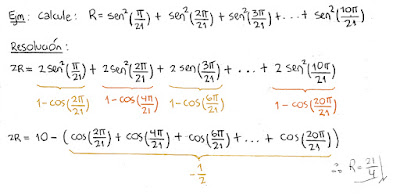 Ejm: calcule: R = sen²(π/21) + sen²(2π/21) + sen²(3π/21) + . . . + sen²(10π/21)
Resolución:
2R = 2sen²(π/21) + 2sen²(2π/21) + 2 sen(3π/21) + . . . + 2 sen²(10π/21)
1-cos(2π/21) 1-cos(4π/21) 1-cos(6π/21) 1-cos(20π/21)
2R = 10 - (cos(2π/21) + cos(4π/21) + cos(6π/21) + . . . + cos(20π/21))
-1/2 ∴ R = 21/4